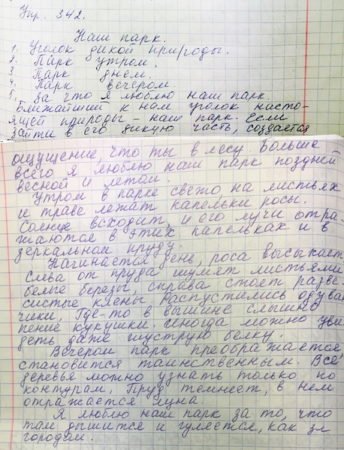 Упр. 342.
Наш парк.
1. Уголок дикой природы.
2. Парк утром.
3. Парк днём.
4. Парк вечером
5. За что я люблю наш парк.
Ближайший к нам уголок насто-
ящей природы - наш парк. Если
зайти в его дикую часть, создаётся
ощущение, что ты в лесу Больше
всего я люблю наш парк поздней
весной и летом
Утром в парке свежо на листьях
и траве лежат капельки росы.
Солнце всходит, и его лучи отра-
жаются в этих капельках и в
зеркальном пруду.
Начинается день, роса высыхает
Слева от пруда шумят листьями
белые берёзы, справа стоят разве-
систые клёны. Распустились одуван
чики. Где-то в вышине слышно
пение кукушки. Иногда можно уви
деть даже шуструю белку
Вечером парк преображается
становится таинственным. Все
деревья можно узнать только по
контурам. Пруд темнеет, в нём
отражается луна
Я люблю наш парк за то, что
там дышится и гуляется, как за
городом.